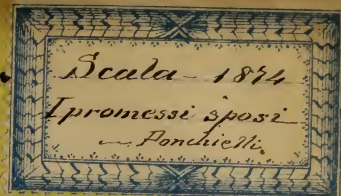 Scala - 1874
I promessi sposi
Ponchielli.